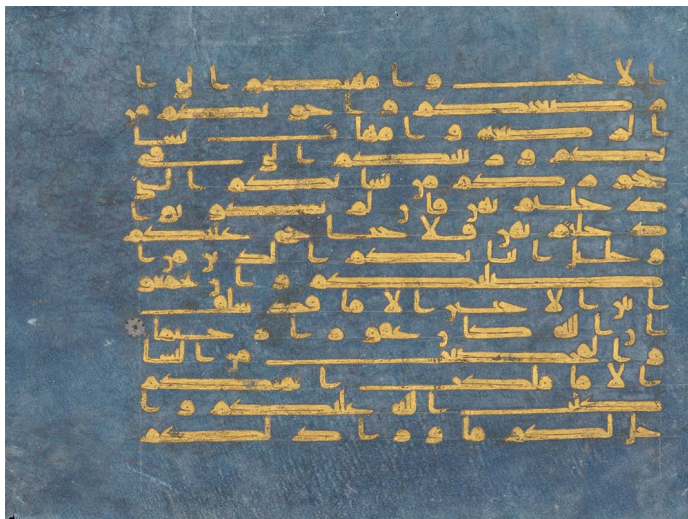 الاخت وامهتكم التي ا
رضعنكم واخوتكم من
الرضعه وامهت نسا
ئكم وربئبكم التي في
حجوركم من نسائكم التي
دخلتم بهن فان لم تكونوا
دخلتم بهن فلا جناح عليكم
وحلئل ابنائكم الذين من ا
صلبكم وان تجمعوا
بين الاختين الا ما قد سلف
ان الله كان غفورا رحيما
والمحصنت من النسا
الا ما ملكت ايمنكم
كتب الله عليكم وا
حل لكم ما ورا ذلكم